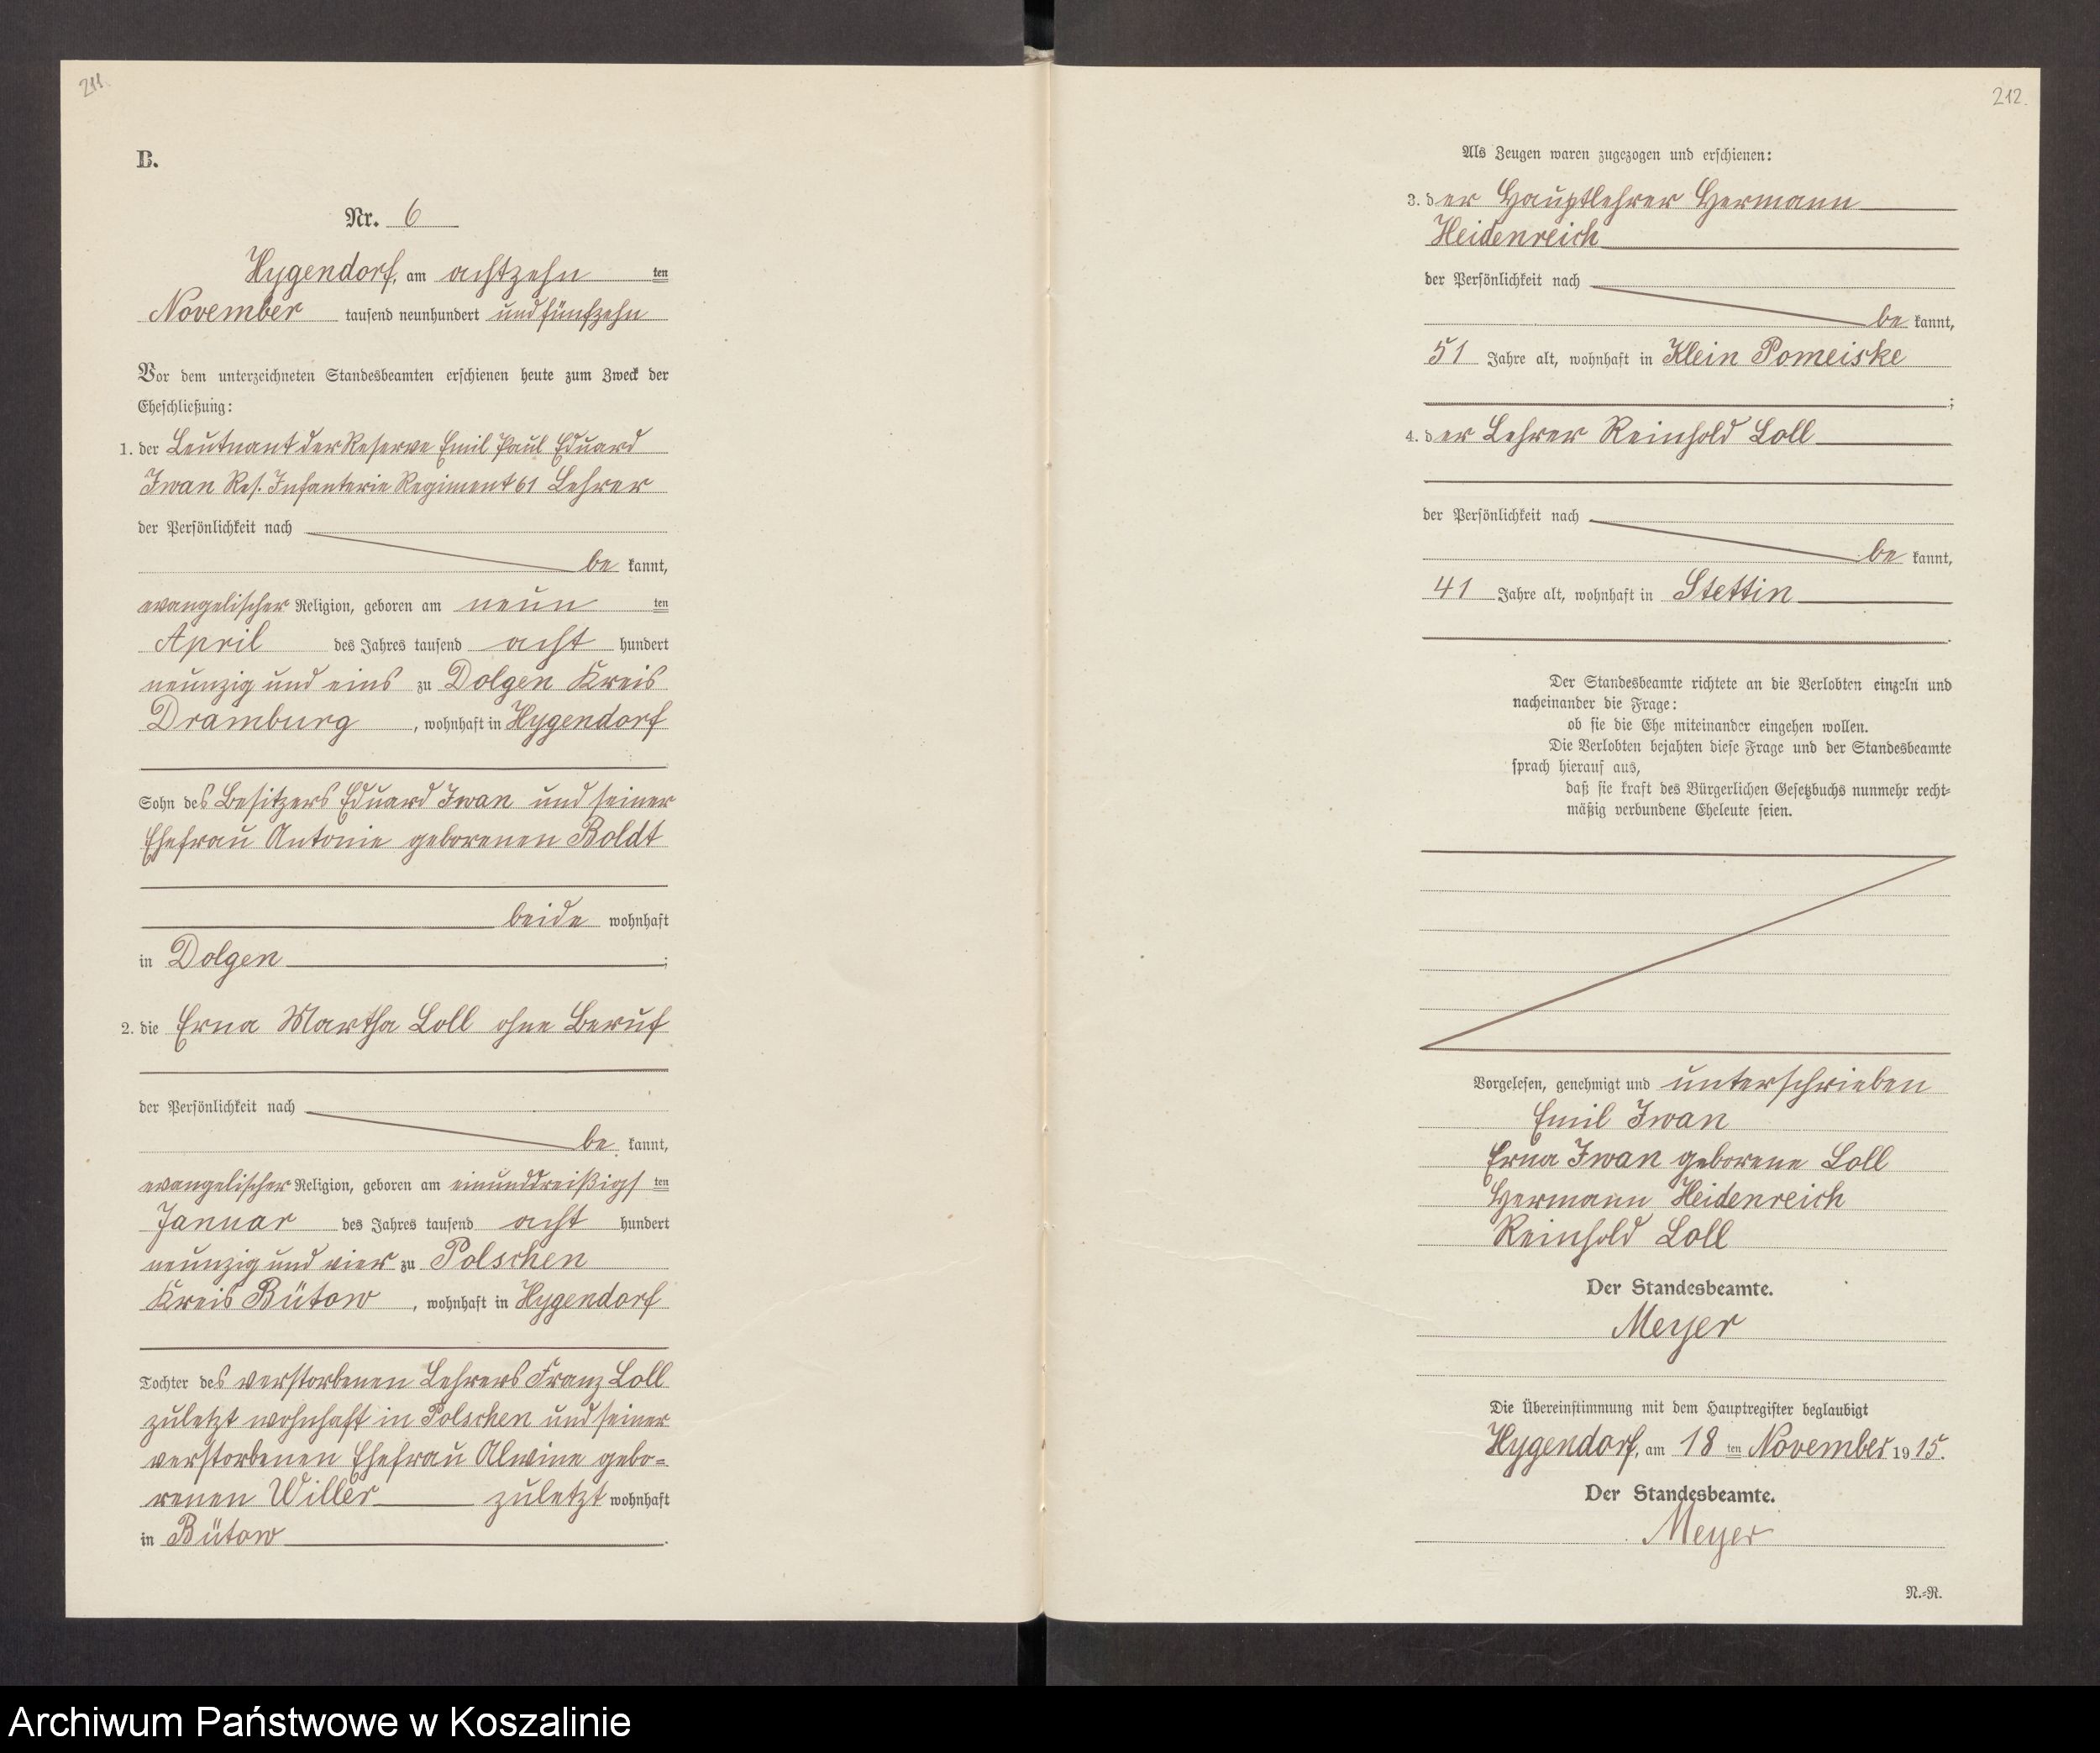 211.
B.
Nr. 6
Hygendorf, am achtzehn ten
November tausend neunhundert und fünfzehn
Vor dem unterzeichneten Standesbeamten erschienen heute zum Zweck der
Eheschließung:
1. der Leutnant der Reserve Emil Paul Eduard
Iwan Res. Infanterie Regiment 61 Lehrer
der Persönlichkeit nach
be kannt,
evangelischer Religion, geboren am neun ten
April des Jahres tausend acht hundert
neunzig und eins zu Dolgen Kreis
Dramburg, wohnhaft in Hygendorf
Sohn des Besitzers Eduard Iwan und seiner
Ehefrau Antonie geborenen Boldt
beide wohnhaft
in Dolgen ;
2. die Erna Martha Loll ohne Beruf
der Persönlichkeit nach
be kannt,
evangelischer Religion, geboren am einunddreißigs ten
Januar des Jahres tausend acht hundert
neunzig und vier zu Polschen
Kreis Bütow, wohnhaft in Hygendorf
Tochter des verstorbenen Lehrers Franz Loll
zuletzt wohnhaft in Polschen und seiner
verstorbenen Ehefrau Alwine gebo=
renen Willer zuletzt wohnhaft
in Bütow .
212.
Als Zeugen waren zugezogen und erschienen:
3. der Hauptlehrer Hermann
Heidenreich
der Persönlichkeit nach
be kannt,
51 Jahre alt, wohnhaft in Klein Pomeiske
;
4. der Lehrer Reinhold Loll
der Persönlichkeit nach
be kannt,
41 Jahre alt, wohnhaft in Stettin
.
Der Standesbeamte richtete an die Verlobten einzeln und
nacheinander die Frage:
ob sie die Ehe miteinander eingehen wollen.
Die Verlobten bejahten diese Frage und der Standesbeamte
sprach hierauf aus,
daß sie kraft des Bürgerlichen Gesetzbuchs nunmehr recht=
mäßig verbundene Eheleute seien.
Vorgelesen, genehmigt und unterschrieben
Emil Iwan
Erna Iwan geborene Loll
Hermann Heidenreich
Reinhold Loll
Der Standesbeamte.
Meyer
Die Übereinstimmung mit dem Hauptregister beglaubigt
Hygendorf, am 18 ten November 1915.
Der Standesbeamte.
Meyer
N.=R.
Archiwum Państwowe w Koszalinie